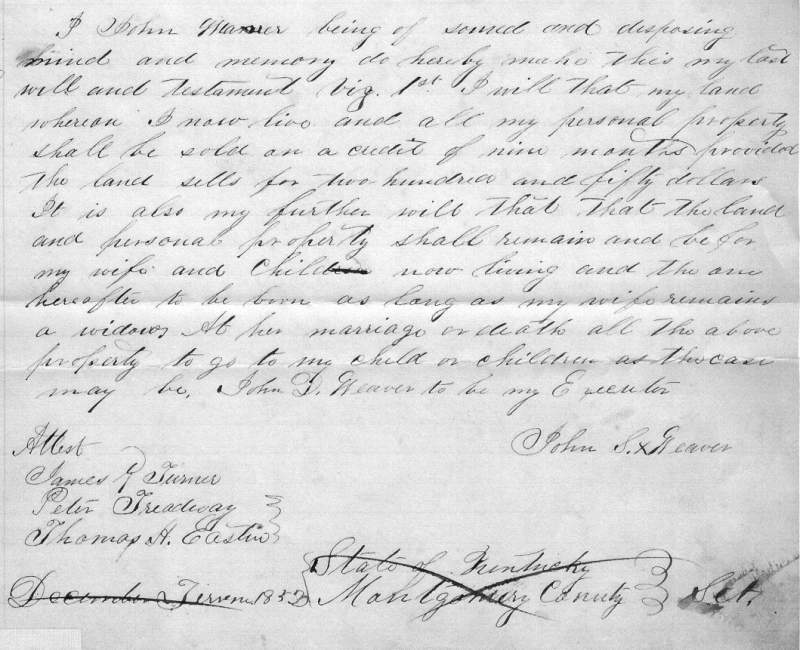 I John Weaver being of sound and disposing
mind and memory do hereby make this my last
will and testament Viz. 1st I will that my land
whereon I now live and all my personal property
shall be sold on a credit of nine months provided
the land sells for two hundred and fifty dollars
It is also my further will that that the land
and personal property shall remain and be for
my wife and child now living and the one
hereafter to be born as long as my wife remains
a widow, At her marriage or death all the above
property to go to my child or children as the case
may be, John D. Weaver to be my Executor
John S. X Weaver
Attest
James R Turner
Peter Treadway
Thomas H. Eastin
State of Kentucky
December 1853 Montgomery County Sct.